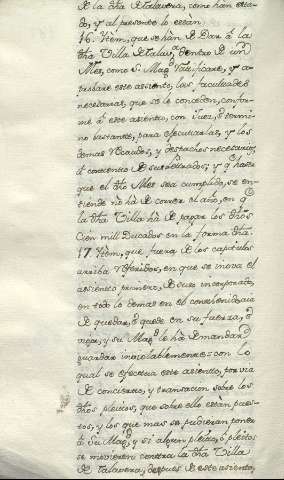 de la dha de Talavera, como hán esta-
do, y al presente lo están.
16. Yttem, que se hán de Dar á la
dha Villa de Talavª dentro de un
Mes, como S. Magd ratificare, y a-
probare este asiento, las facultades
necesarias, que se le conceden, confor-
me á este asiento, con Juez, ó termi-
no bastante, para egecutarlas, y los
demas recaudos, y despachos necesarios,
á contento de sus letrados, y qe hasta
que el dho Mes sea cumplido, se en-
tiende no há de correr el año, en q
la dha Villa há de pagar los dhos
Cien mill Ducados en la forma dha
17. Yttem, que fuera de los capitulos
arriba referidos, en que se inova el
asiento primero, de suso incorporado,
en todo lo demas en el contenido, haia
de quedar, é quede en su fuerza, é
vigor, y su Magd lo há de mandar
guardar inviolablemente: con lo
qual se efectua este asiento, por via
de concierto, y transacion sobre los
dhos pleitos, que sobre ello están pues-
tos, y los que mas se pudieran poner
á Su Magd, y si algun pleito, ó pleitos
se movieren contra la dha Villa
de Talavera, despues de este asiento,